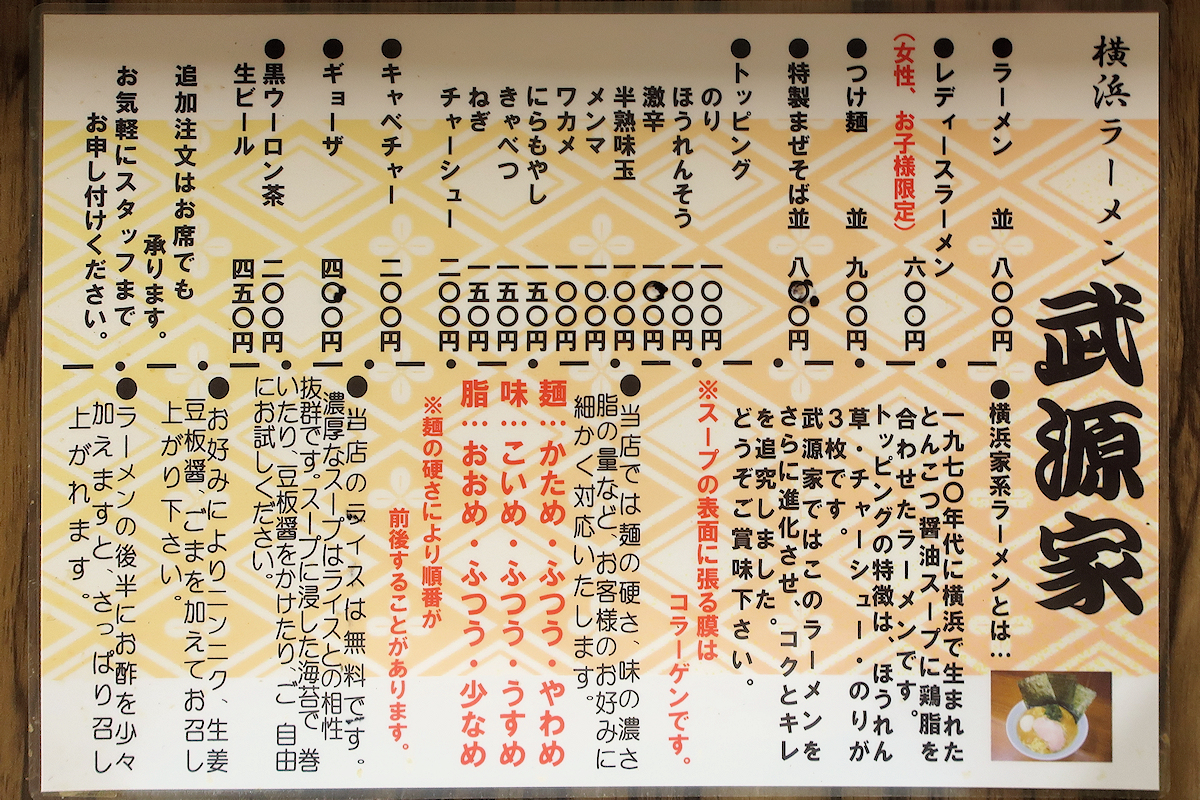 横浜ラーメン
武源家
●ラーメン 並 八〇〇円
●レディースラーメン
(女性、お子様限定) 六〇〇円
●つけ麺 並 九〇〇円
●特製まぜそば並 八〇〇円
●トッピング
のり 一〇〇円
ほうれんそう 一〇〇円
激辛 一〇〇円
半熟味玉 一〇〇円
メンマ 一〇〇円
ワカメ 一〇〇円
にらもやし 一五〇円
きゃべつ 一五〇円
ねぎ 一五〇円
チャーシュー 二〇〇円
●キャベチャー 二〇〇円
●ギョーザ 四〇〇円
●黒ウーロン茶 二〇〇円
生ビール 四五〇円
追加注文はお席でも
承ります。
お気軽にスタッフまで
お申し付けください。
●横浜家系ラーメンとは…
一九七〇年代に横浜で生まれた
とんこつ醤油スープに鶏脂を
合わせたラーメンです。
トッピングの特徴は、ほうれん
草・チャーシュー・のりが
3枚です。
武源家ではこのラーメンを
さらに進化させ、コクとキレ
を追究しました。
どうぞご賞味下さい。
※スープの表面に張る膜は
コラーゲンです。
●当店では麺の硬さ、味の濃さ
脂の量など、お客様のお好みに
細かく対応いたします。
麺…かため・ふつう・やわめ
味…こいめ・ふつう・うすめ
脂…おおめ・ふつう・少なめ
※麺の硬さにより順番が
前後することがあります。
●当店のライスは無料です。
濃厚なスープはライスとの相性
抜群です。スープに浸した海苔で巻
いたり、豆板醤をかけたり、ご自由
にお試しください。
●お好みによりニンニク、生姜
豆板醤、ごまを加えてお召し
上がり下さい。
●ラーメンの後半にお酢を少々
加えますと、さっぱり召し
上がれます。